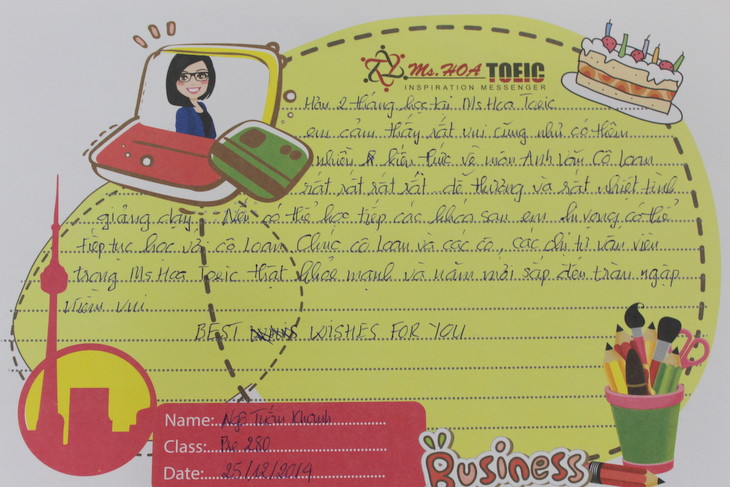 Ms.HOA TOEIC
INSPIRATION MESSENGER
Hơn 2 tháng học tại Ms Hoa Toeic
em cảm thấy rất vui cũng như có thêm
nhiều kiến thức về môn Anh Văn Cô Loan
rất rất rất rất dễ thương và rất nhiệt tình
giảng dạy. Nếu có thể học tiếp các khóa sau em hi vọng có thể
tiếp tục học với cô Loan. Chúc cô Loan và các cô, các chị tư vấn viên
trong Ms Hoa Toeic thật khỏe mạnh và năm mới sắp đến tràn ngập
niềm vui
BEST WISHES FOR YOU
Name: Ngô Tuấn Khanh
Class: Pre 280
Date: 25/12/2019
BUSINESS